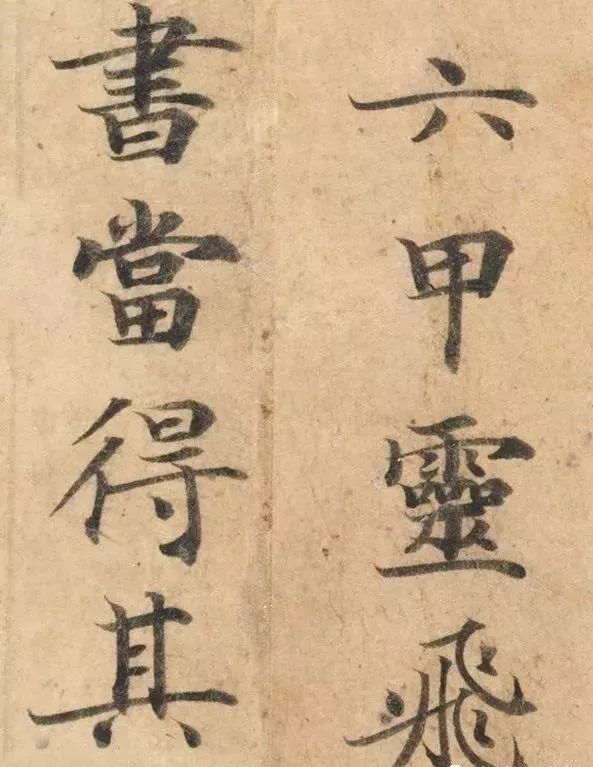 六甲靈飛
書當得其